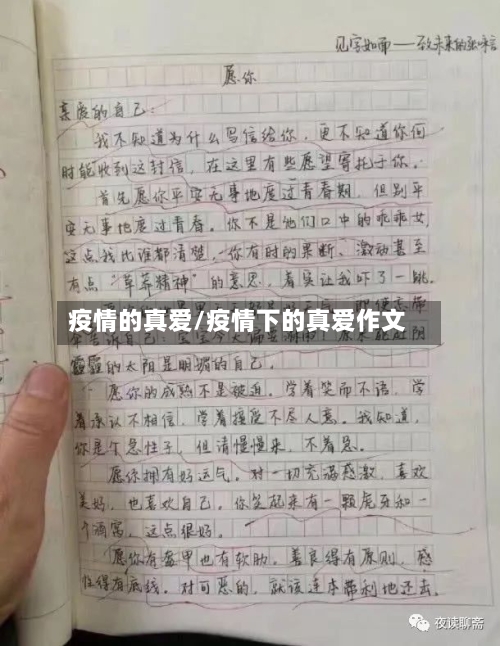 见字如面——致未来的张
愿你
亲爱的自己：
我不知道为什么写信给你，更不知道你何
时能收到这封信，在这里有些愿望寄托于你。
首先愿你平安无事地度过青春期，但别平
安无事地度过青春。你不是他们口中的乖乖女，
这点我比谁都清楚。你有时的果断、激动甚至
有点“草莽精神”的意思，着实让我吓了一跳。
疫情的真爱/疫情下的真爱作文
霾霾的太阳是明媚的自己。
愿你的成熟不是被迫。学着笑而不语，学
着承认不相信，学着接受不尽人意。我知道，
你是个急性子，但请慢慢来，不着急。
愿你拥有好运气。对一切充满感激，喜欢
美好，也喜欢自己。你笑起来有一颗虎牙和一
个酒窝，这点很好。
愿你有盔甲也有软肋。善良得有原则，感
性得有底线。对可恶的，就该连本带利地还击。
夜读聊斋